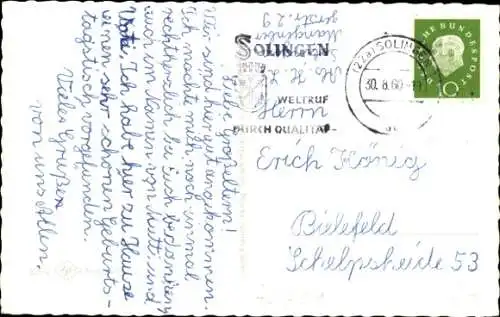 Liebe Großeltern!
Wir sind hier gut angekommen.
Ich möchte mich noch einmal
recht herzlich für Euch bedanken
auch im Namen von Mutti und
Vati. Ich habe hier zu Hause
einen sehr schönen Geburts-
tagstisch vorgefunden.
Viele Grüße
von uns Allen.
SOLINGEN
WELTRUF
DURCH QUALITÄT
(22a) SOLINGEN
30.8.60
DEUTSCHE BUNDESPOST
10
Herrn
Erich König
Bielefeld
Schelpsheide 53